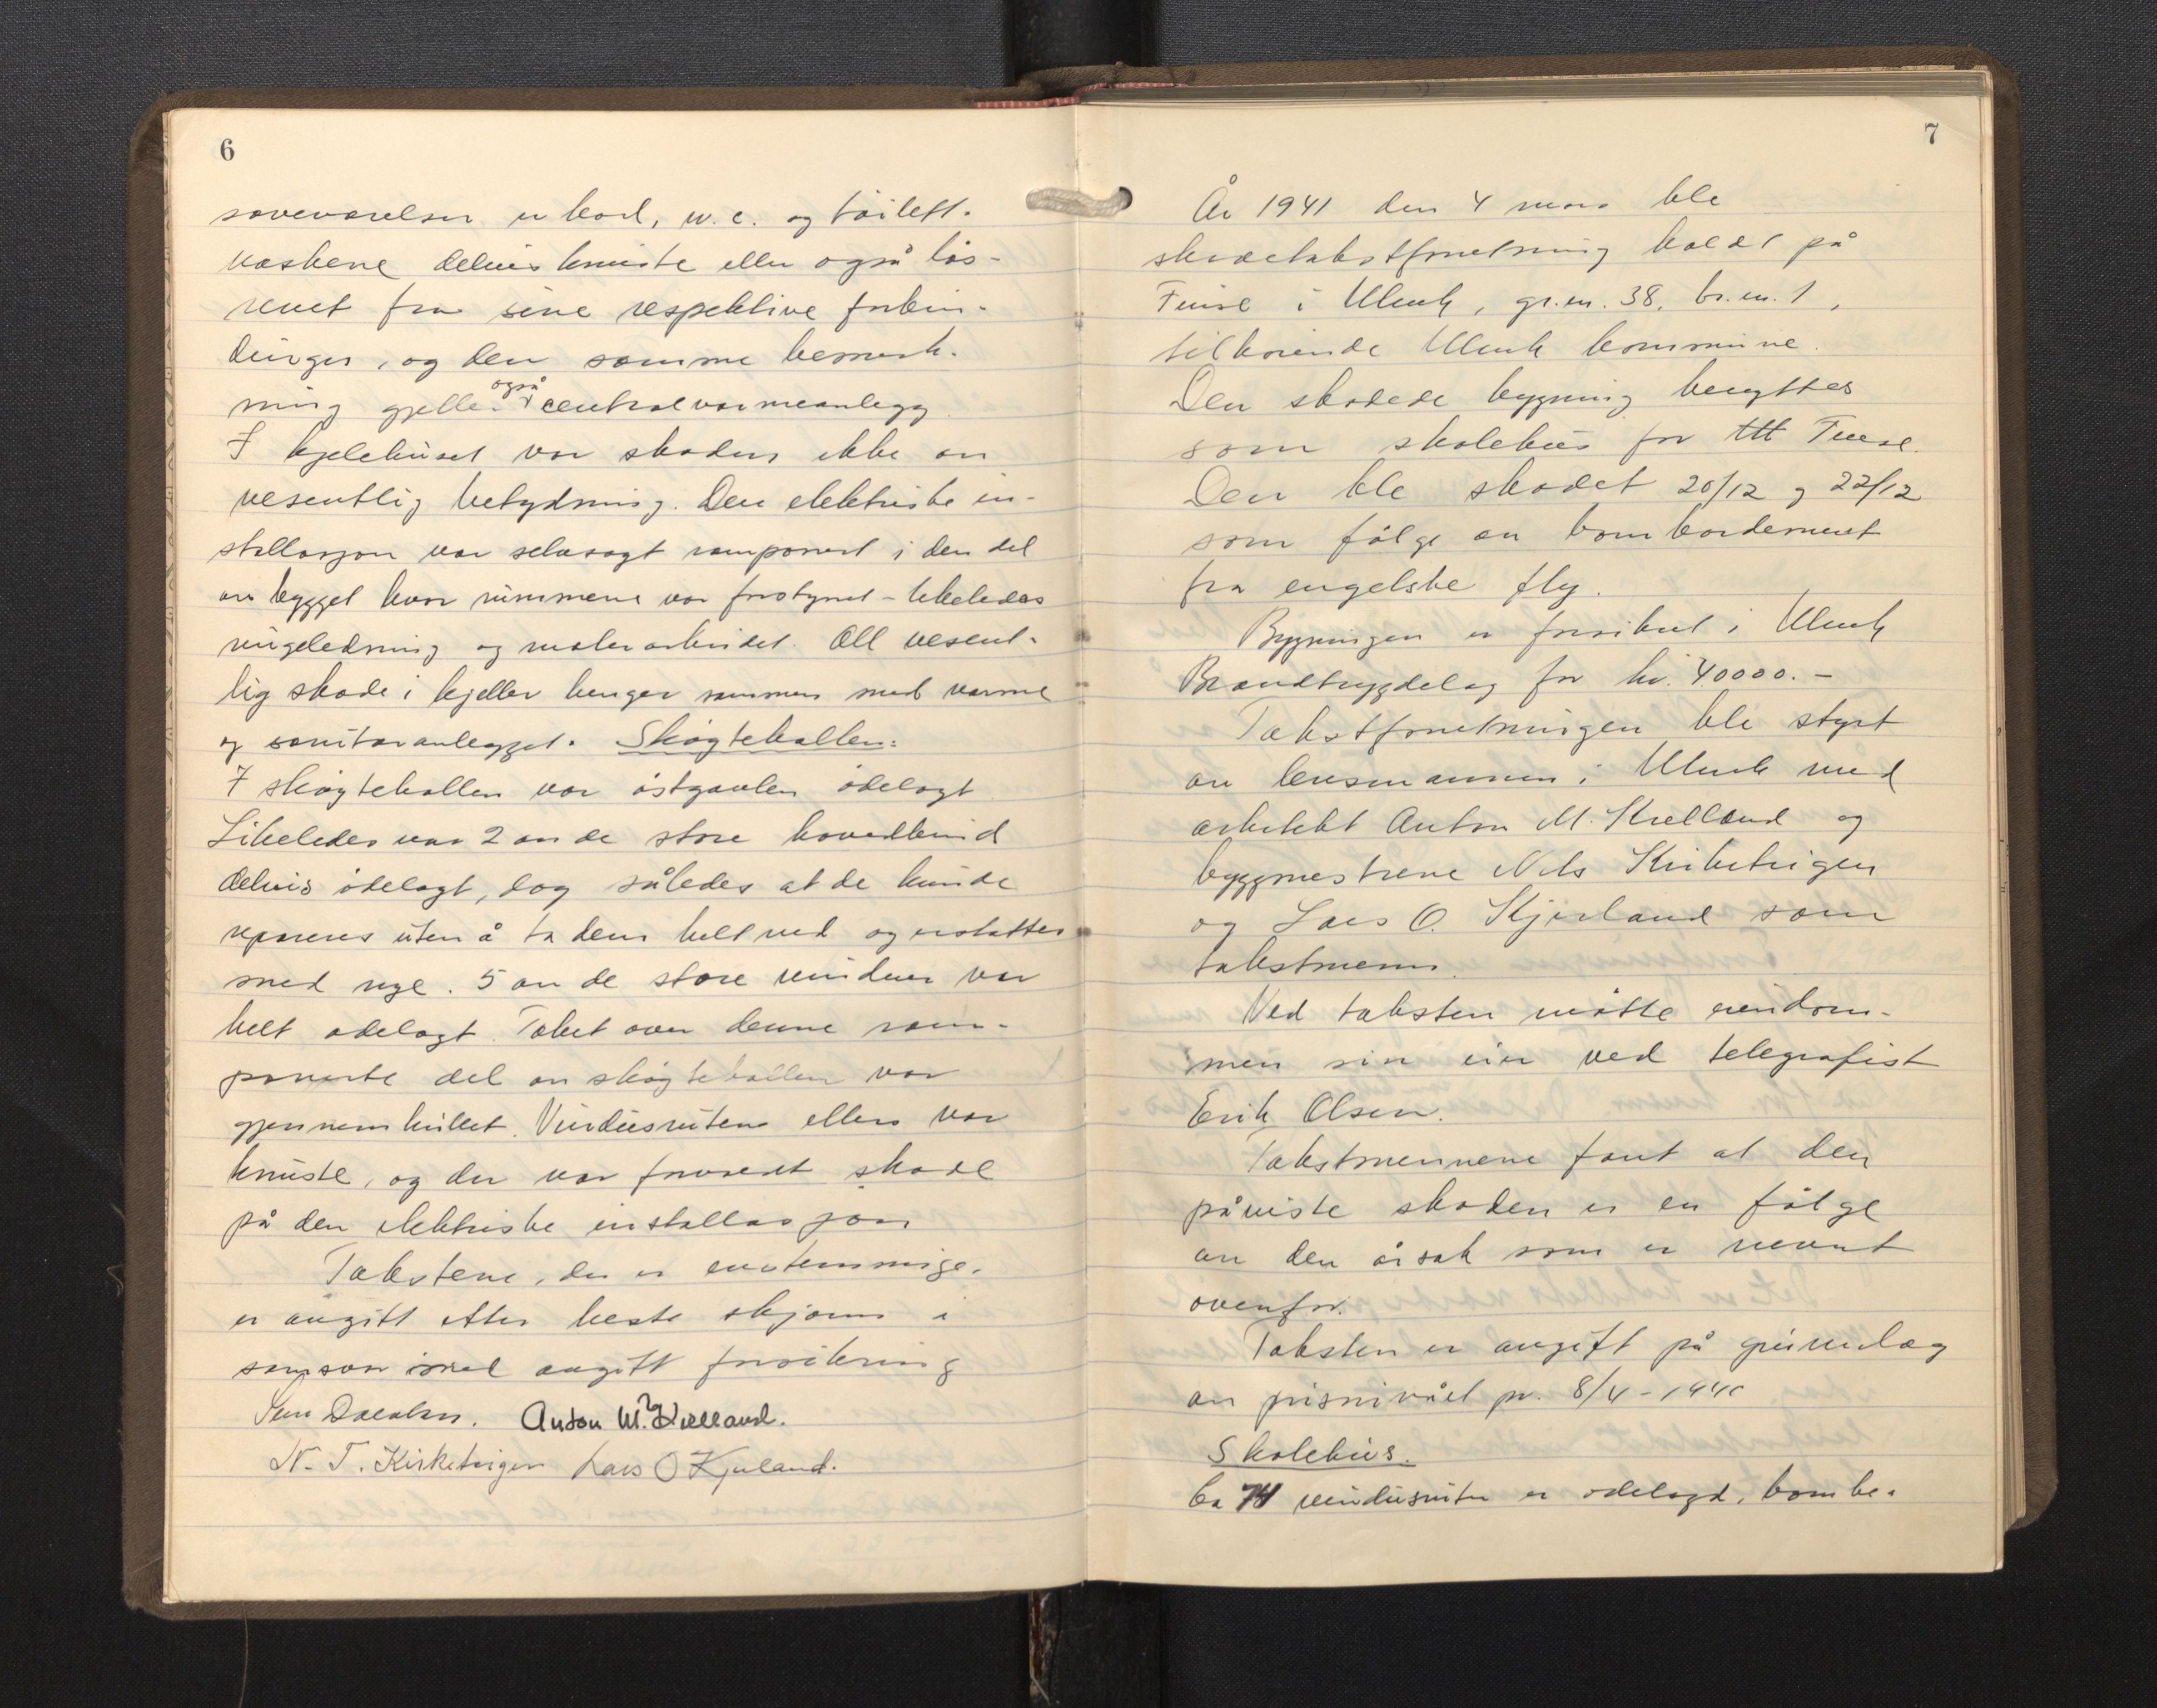 6
soveværelser er bad, w.c. og toilett-
vaskene delvis knuste eller også løs-
revet fra sine respektive forbin-
dinger, og den samme bemerk-
ning gjelder også centralvarmeanlegg.
I kjelehuset var skaden ikke av
vesentlig betydning. Den elektriske in-
stallasjon var selvsagt ramponert i den del
av bygget hvor rummene var forstyrret - likeledes
ringeledning og malerarbeidet. All vesent-
lig skade i kjeller henger sammen med varme
og sanitæranlegget. Skøytehallen:
I skøytehallen var østgavlen ødelagt
Likeledes var 2 av de store hovedbind
delvis ødelagt, dog således at de kunde
repareres uten å ta dem helt ned og erstattes
med nye. 5 av de store vinduer var
helt ødelagt. Taket over denne ram-
ponerte del av skøytehallen var
gjennemhullet. Vindusrutene ellers var
knuste, og der var forvoldt skade
på den elektriske installasjon
Takstene, der er enstemmige,
er avgitt efter beste skjønn i
samsvar med avgitt forsikring
Anton M. Kielland.
N. T. Kirketeigen Lars O Kjerland.
7
År 1941 den 4 mars ble
skadetakstforretning holdt på
Finse i Ulvik, gr.nr. 38, br.nr. 1,
tilhørende Ulvik kommune.
Den skadede bygning benyttes
som skolehus for Finse.
Den ble skadet 20/12 og 22/12
som følge av bombardement
fra engelske fly.
Bygningen er forsikret i Ulvik
Brandtrygdelag for kr. 40000.-
Takstforretningen ble styrt
av lensmannen i Ulvik med
arkitekt Anton M. Kielland og
byggmestrene Nils Kirketeigen
og Lars O. Kjerland som
takstmenn.
Ved taksten møtte eiendom-
men sin eier ved telegrafist
Erik Olsen.
Takstmennene fant at den
påviste skaden er en følge
av den årsak som er nevnt
ovenfor.
Taksten er avgitt på grunnlag
av prisnivået pr. 8/4 - 1940
Skolehus.
Ca 74 vindusruter er ødelagd, bombe-